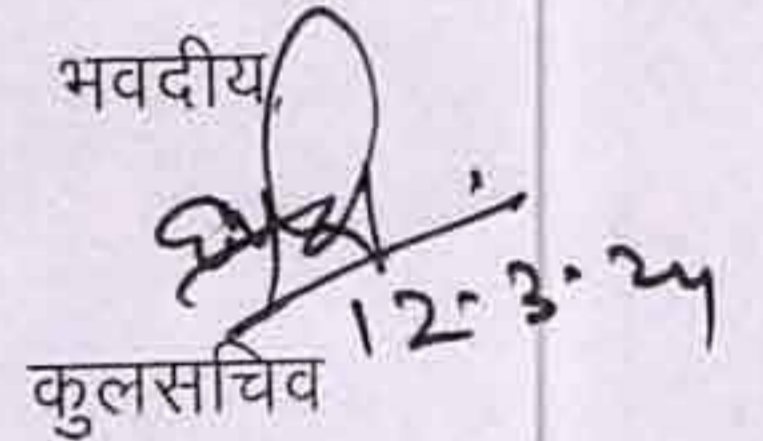 भवदीय,
12.3.24
कुलसचिव